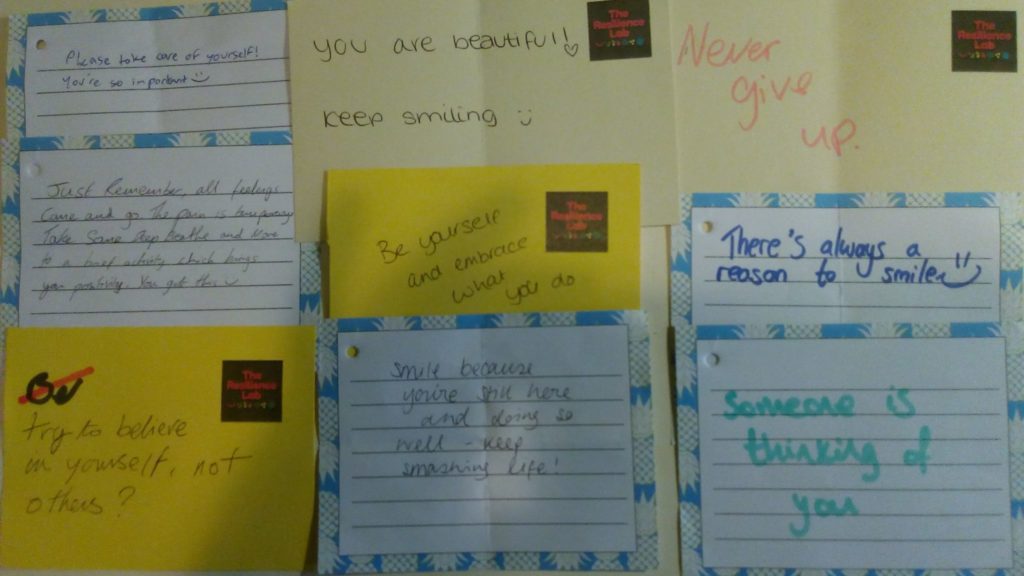 Please take care of yourself!
You're so important
you are beautiful!
keep smiling
The
Resilience
Lab
Never
give
up.
The
Resilience
Lab
Just Remember, all feelings
Come and go. The pain is temporary
Take Some deep breaths and Move
to a brief activity which brings
you positivity. You got this
Be yourself
and embrace
what
you do
The
Resilience
Lab
There's always a
reason to smile
try to believe
in yourself, not
others?
The
Resilience
Lab
Smile because
you're still here
and doing so
well - keep
smashing life!
Someone is
thinking of
you